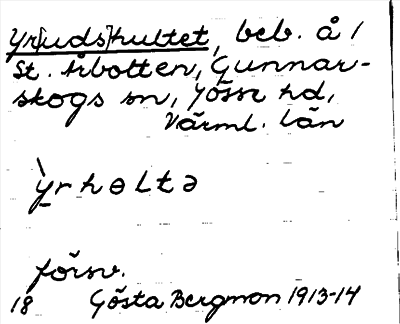 Yr[uds]hultet, beb. å 1/
St. Årbotten, Gunnar-
skogs sn, Jösse hd,
Värml. län
`yrhɵltə
försv.
18 Gösta Bergman 1913-14